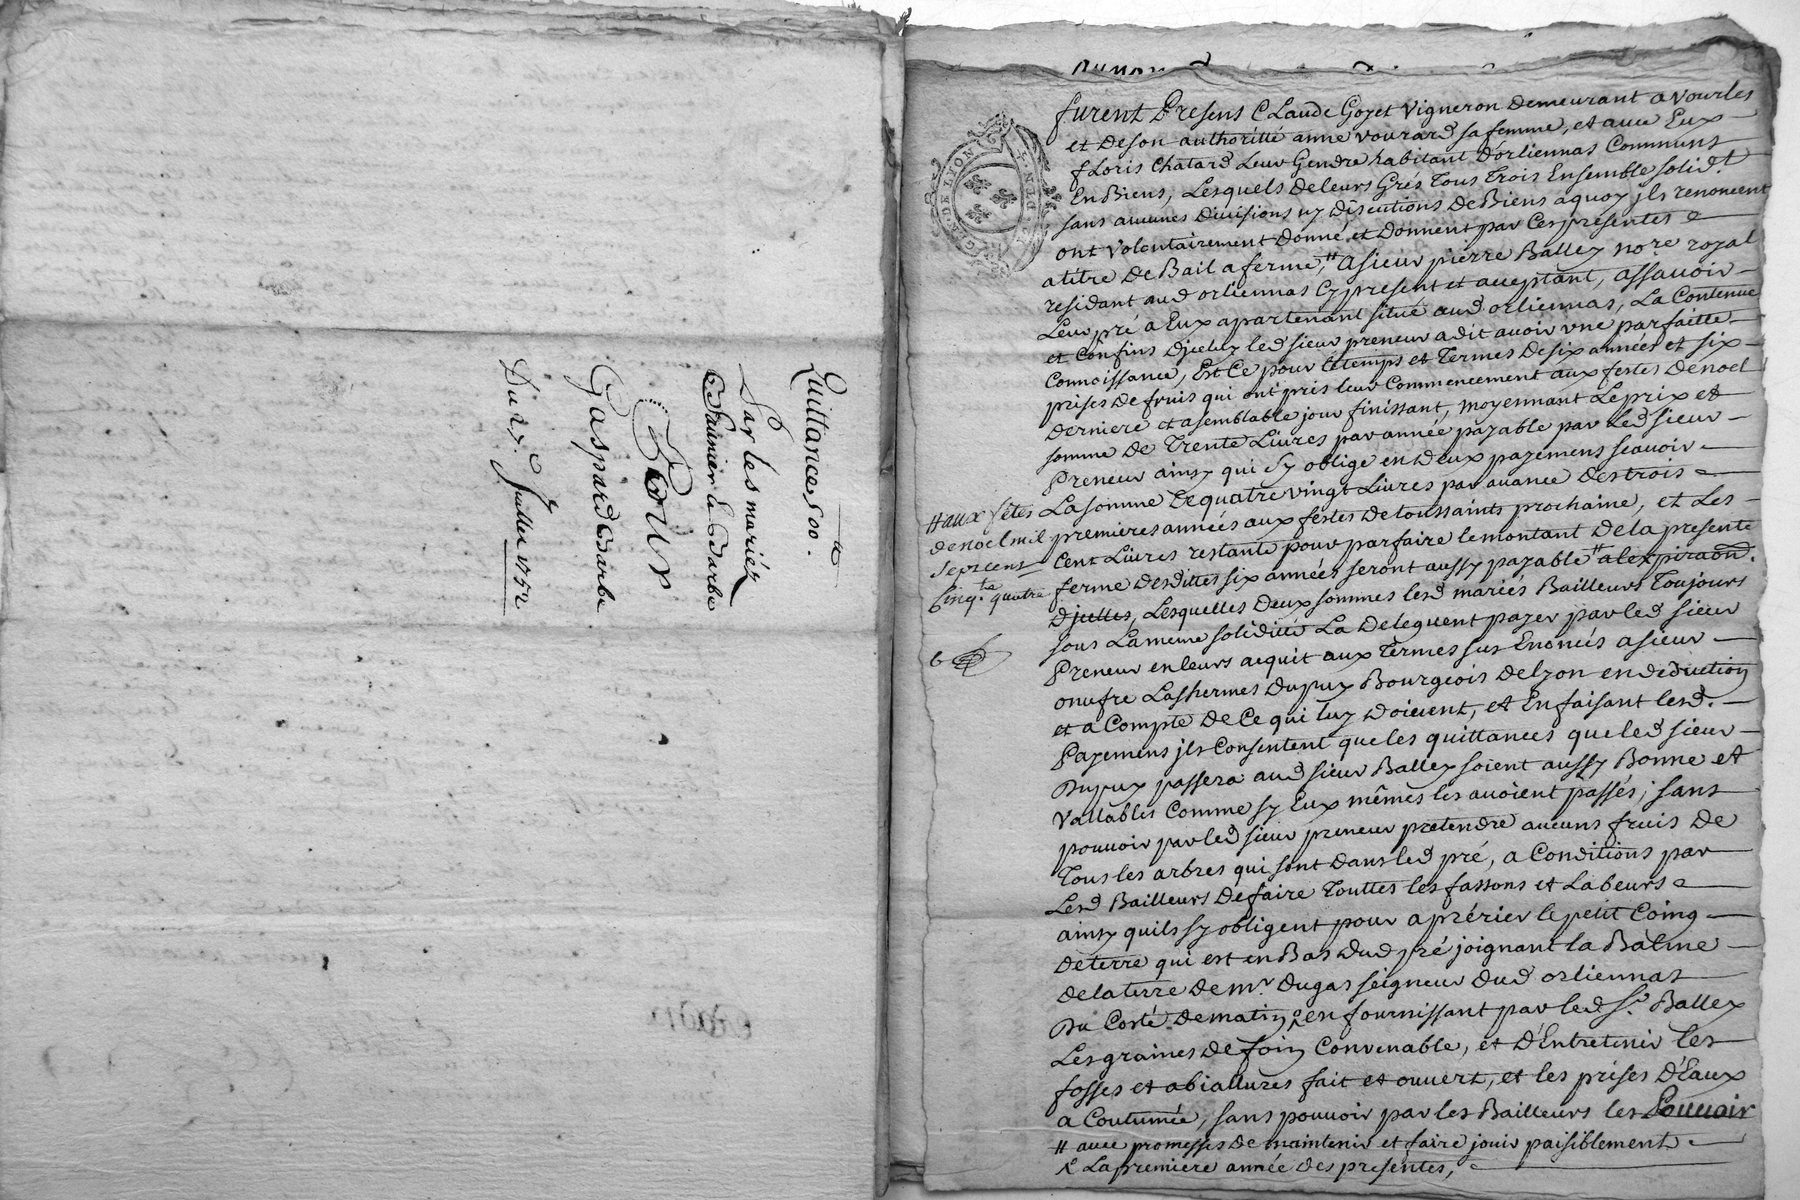 Quittance, 500.ᵗᵗ
Par les mariéz
Saunier et Barbe
Pour
Gaspard Barbe
Du 27.e Juillet 1752
GEN. DE LYON
furent Presens Claude Goyet Vigneron demeurant a vourles
et deson authoritté anne vourard sa femme, et avec Eux
floris Chatard Leur Gendre habitant d'orliennas Communs
En Biens, Lesquels de leurs Grés Tous Trois Ensemble solid.t
sans aucunes divisions ny discutions de Biens a quoy jls renoncent
ont volontairement donné et donnent par Ces presentes
a titre de Bail a ferme, # a sieur pierre Balley no.re royal
residant aud orliennas Cy present et acceptant, assavoir
Leur pré a Eux apartenant situé aud orliennas, La Contenue
et Confins djceluy led sieur preneur a dit avoir vne parfaitte
Connoissance, Est Ce pour le temps et Termes de six années et six
prises de fruis qui ont pris leur Commencement aux festes de noel
derniere et a semblable jour finissant, moyennant Le prix et
somme de Trente Livres par année payable par led sieur
Preneur ainsy qui sy oblige en deux payemens scavoir
La somme de quatre vingt Livres par avance des trois
premieres années aux festes de toussaints prochaine, et Les
Cent Livres restante pour parfaire le montant de la presente
ferme desdittes six années seront aussy payable # a lexpiraon.
djcelles, Lesquelles deux sommes lesd mariés Bailleurs Toujours
sous La meme solidité La deleguent payer par led sieur
Preneur en leurs acquit aux Termes sus Enoncés a sieur
onufre Lashermes dupuy Bourgeois de lyon en deduction
et a Compte de Ce qui luy doivent, et En faisant lesd.
Payemens jls Consentent que les quittances que led sieur
dupuy passera aud sieur Balley soient aussy Bonne et
Vallables Comme sy Eux mêmes les avoient passés; sans
pouvoir par led sieur preneur pretendre aucuns fruis de
Tous les arbres qui sont dans led pré, a Conditions par
Lesd Bailleurs de faire Touttes les fassons et Labeurs
ainsy quils sy obligent pour aprérier le petit Coing
de terre qui est en Bas dud pré joignant la Balme
de la terre de mr. dugas seigneur dud orliennas
du Costé de matin, en fournissant par led sr. Balley
Les graines de foin Convenable, et d'Entretenir les
fosses et abiallures fait et ouvert, et les prises d'Eaux
a Coutumée, sans pouvoir par les Bailleurs les Pouvoir
# avec promesses de maintenir et faire jouir paisiblement
La premiere année des presentes,
# aux fêtes
de noel mil
sept cens
Cinq.te quatre